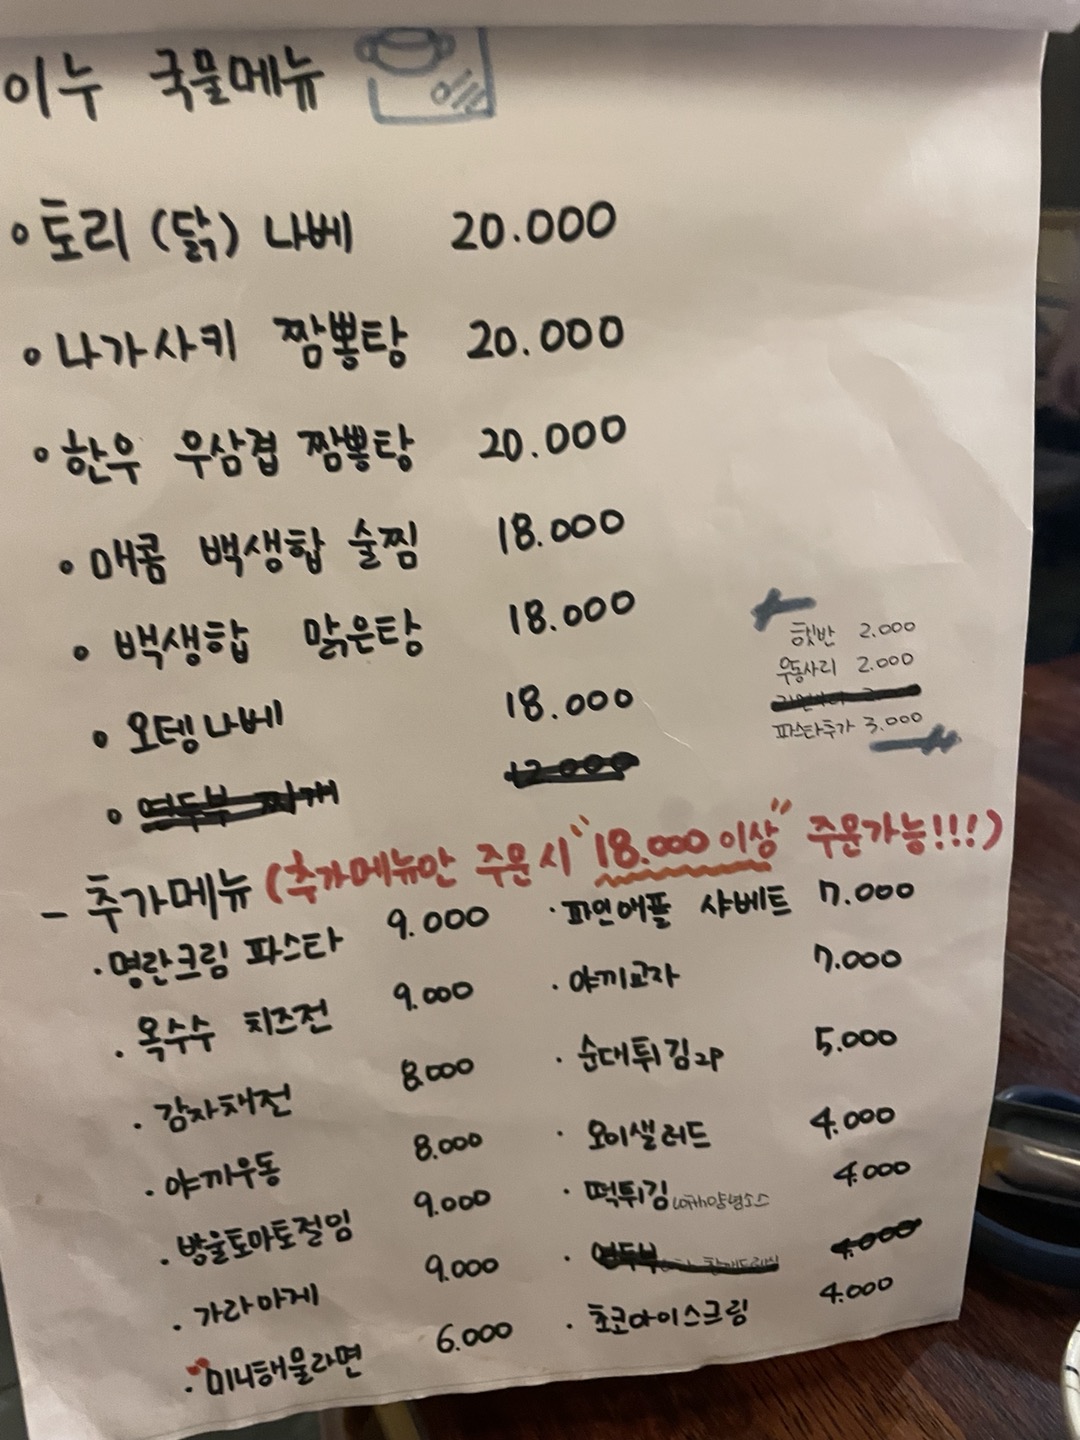 이누 국물메뉴
• 토리 (닭) 나베 20.000
• 나가사키 짬뽕탕 20.000
• 한우 우삼겹 짬뽕탕 20.000
• 매콤 백생합 술찜 18.000
• 백생합 맑은탕 18.000
• 오뎅나베 18.000
햇반 2.000
우동사리 2.000
파스타추가 3.000
• 연두부 찌개 12.000
- 추가메뉴 (추가메뉴만 주문 시 "18.000 이상" 주문가능!!!)
· 명란크림 파스타 9.000
· 옥수수 치즈전 9.000
· 감자채전 8.000
· 야끼우동 8.000
· 방울토마토절임 9.000
· 가라아게 9.000
· 미니해물라면 6.000
· 파인애플 샤베트 7.000
· 야끼교자 7.000
· 순대튀김2P 5.000
· 오이샐러드 4.000
· 떡튀김with양념소스 4.000
· 연두부 4.000
· 초코아이스크림 4.000